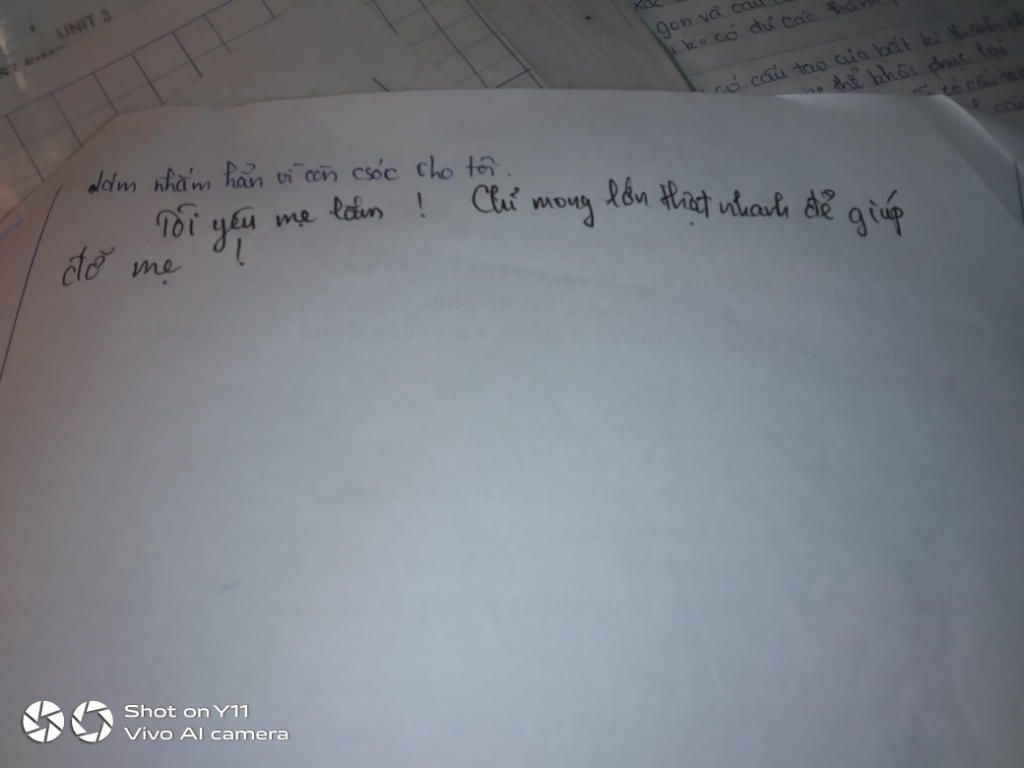 UNIT 3
gọn và cấu
ko có dư các thành
có cấu tạo của bất kì thành
thể khôi phục lại
có cấu tạo
dơm nhắm hẳn vì còn csóc cho tôi.
Tôi yêu mẹ lắm ! Chỉ mong lớn thật nhanh để giúp
đỡ mẹ !
Shot on Y11
Vivo AI camera